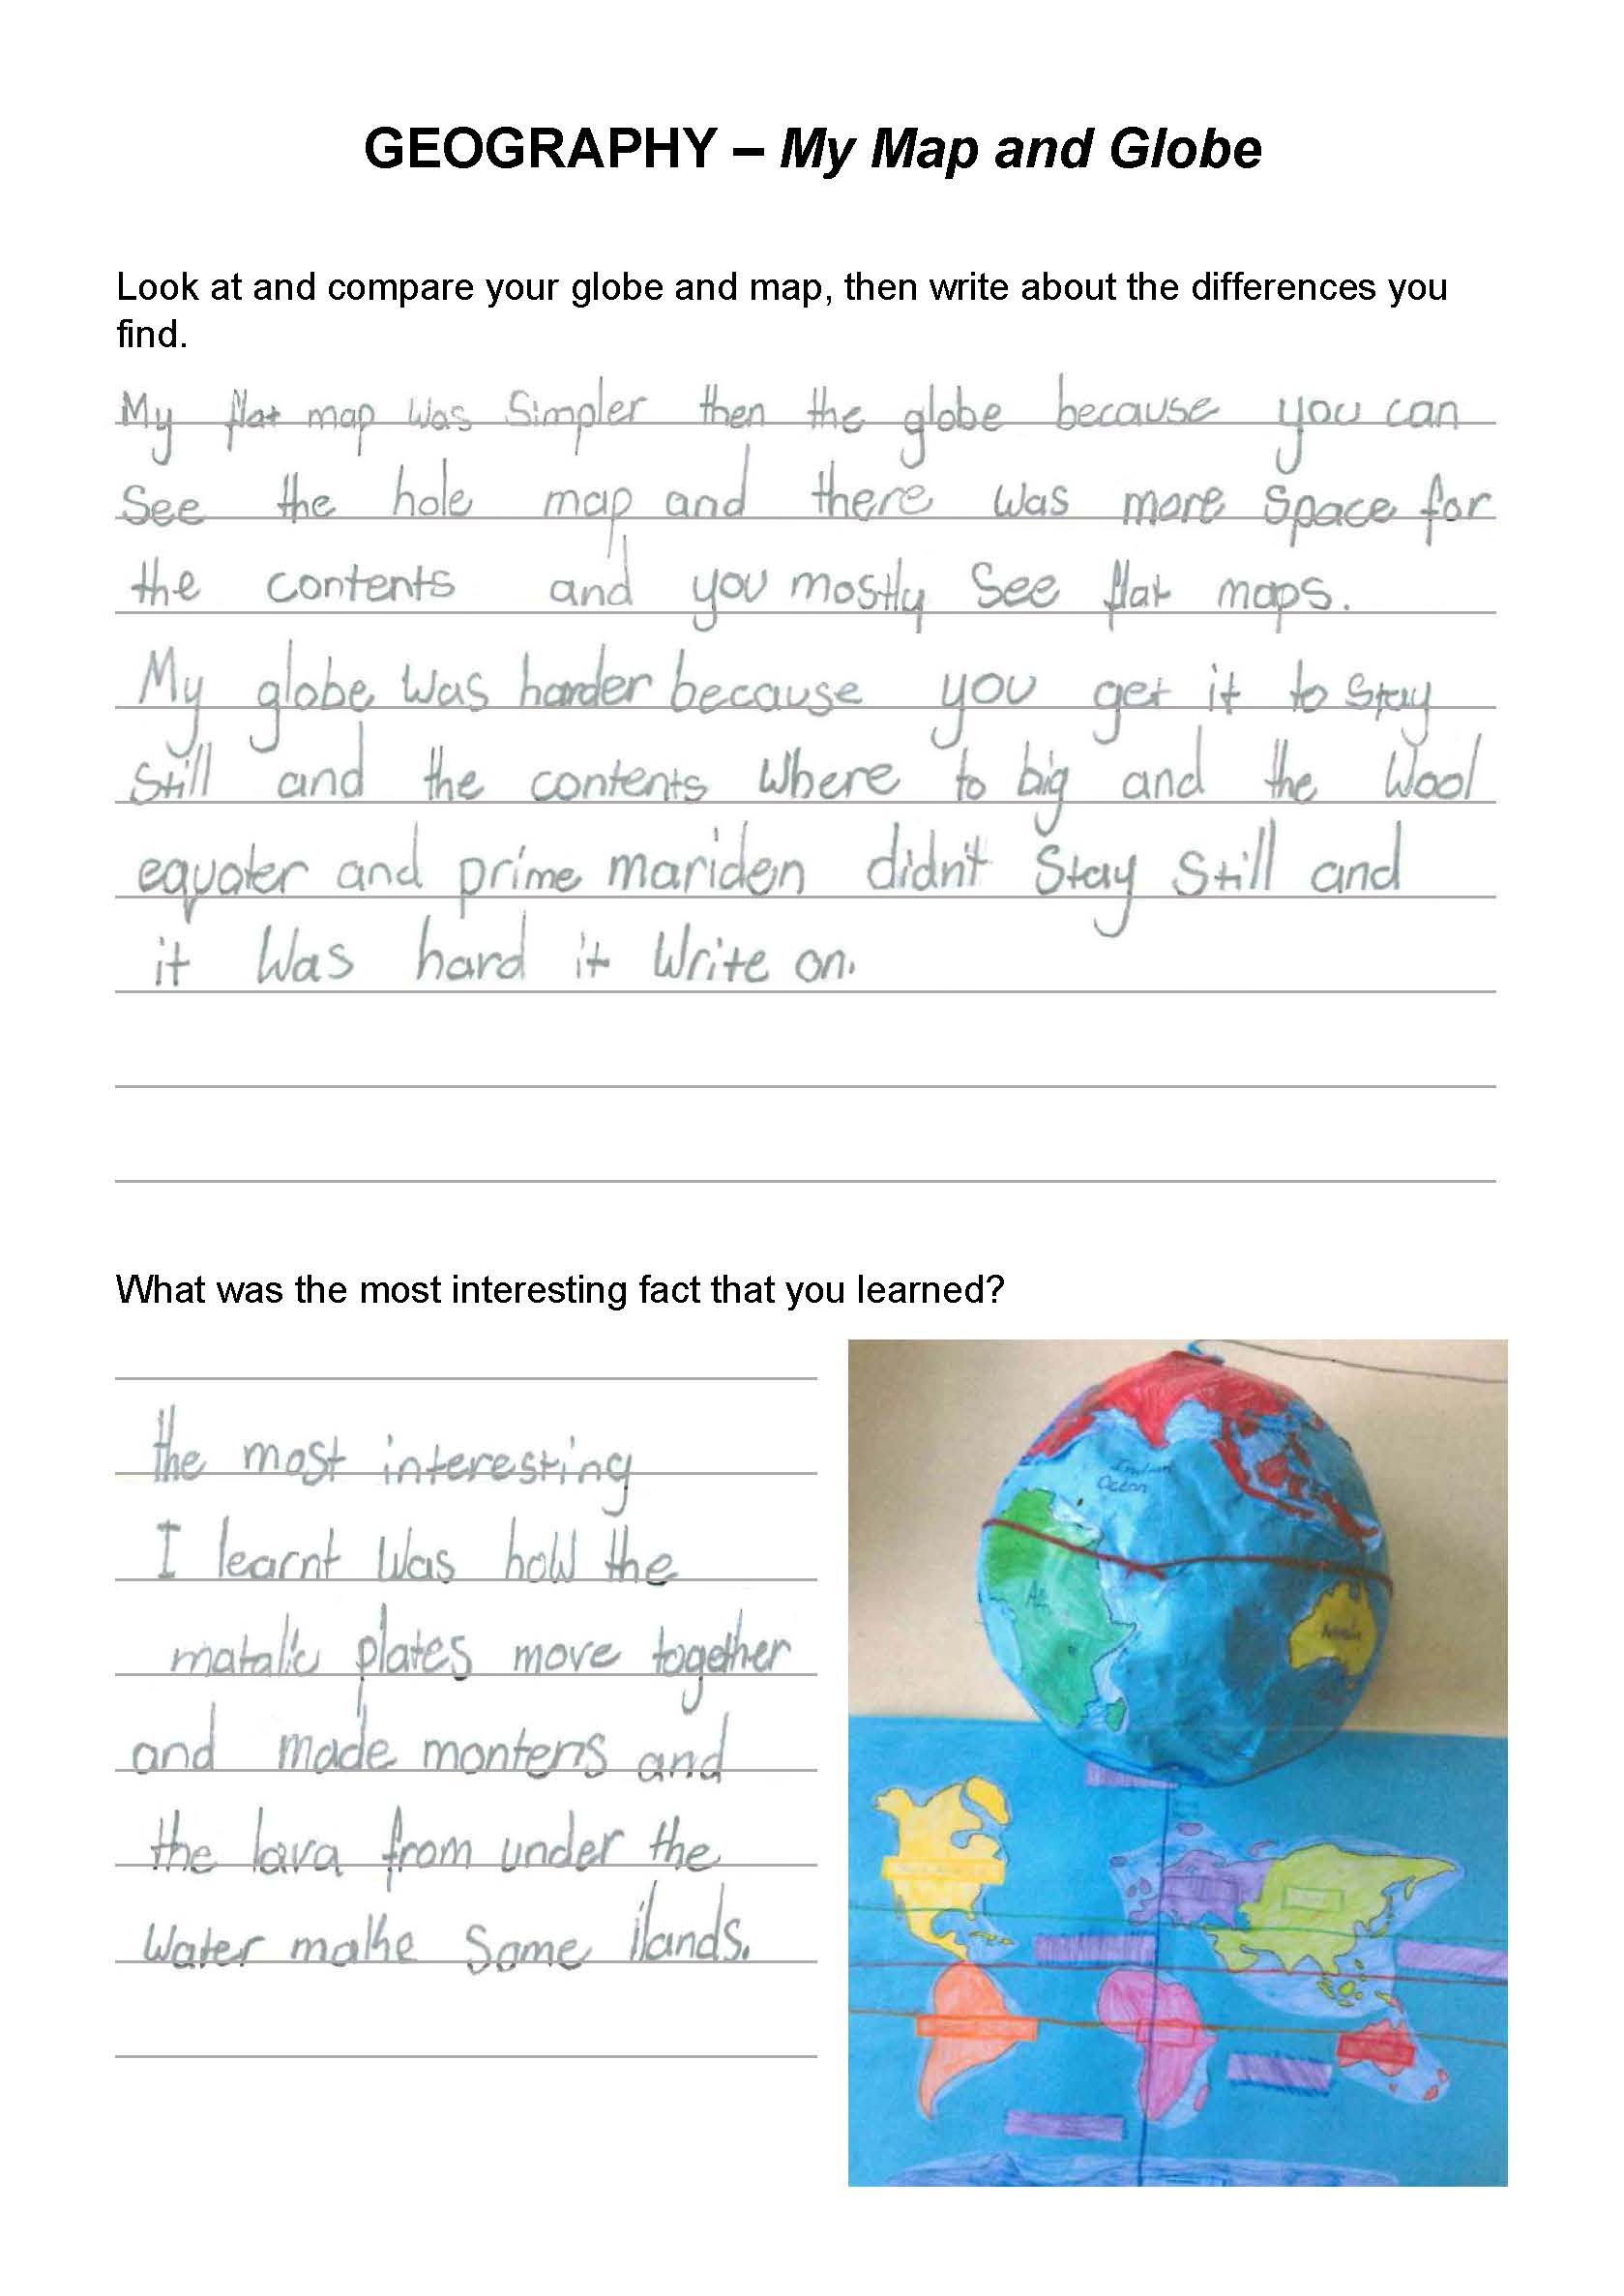 GEOGRAPHY – My Map and Globe
Look at and compare your globe and map, then write about the differences you
find.
My flat map was Simpler then the globe because you can
See the hole map and there was more Space for
the contents and you mostly See flat maps.
My globe was harder because you get it to Stay
Still and the contents Where to big and the Wool
equater and prime mariden didn't Stay Still and
it Was hard it Write on.
What was the most interesting fact that you learned?
the most interesting
I learnt Was how the
matalic plates move together
and made montens and
the lava from under the
Water make Some ilands.
Indian
Ocean